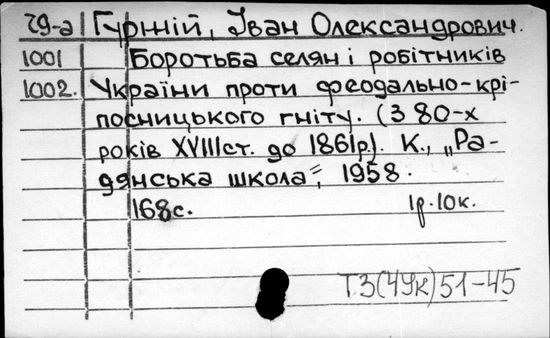 29-а Гуржій, Іван Олександрович.
1001 Боротьба селян і робітників
1002. України проти феодально-крі-
посницького гніту. (З 80-х
років XVIII ст. до 1861р.). К., „Ра-
дянська школа", 1958.
168с. 1р.10к.
Т3(4Ук)51-45